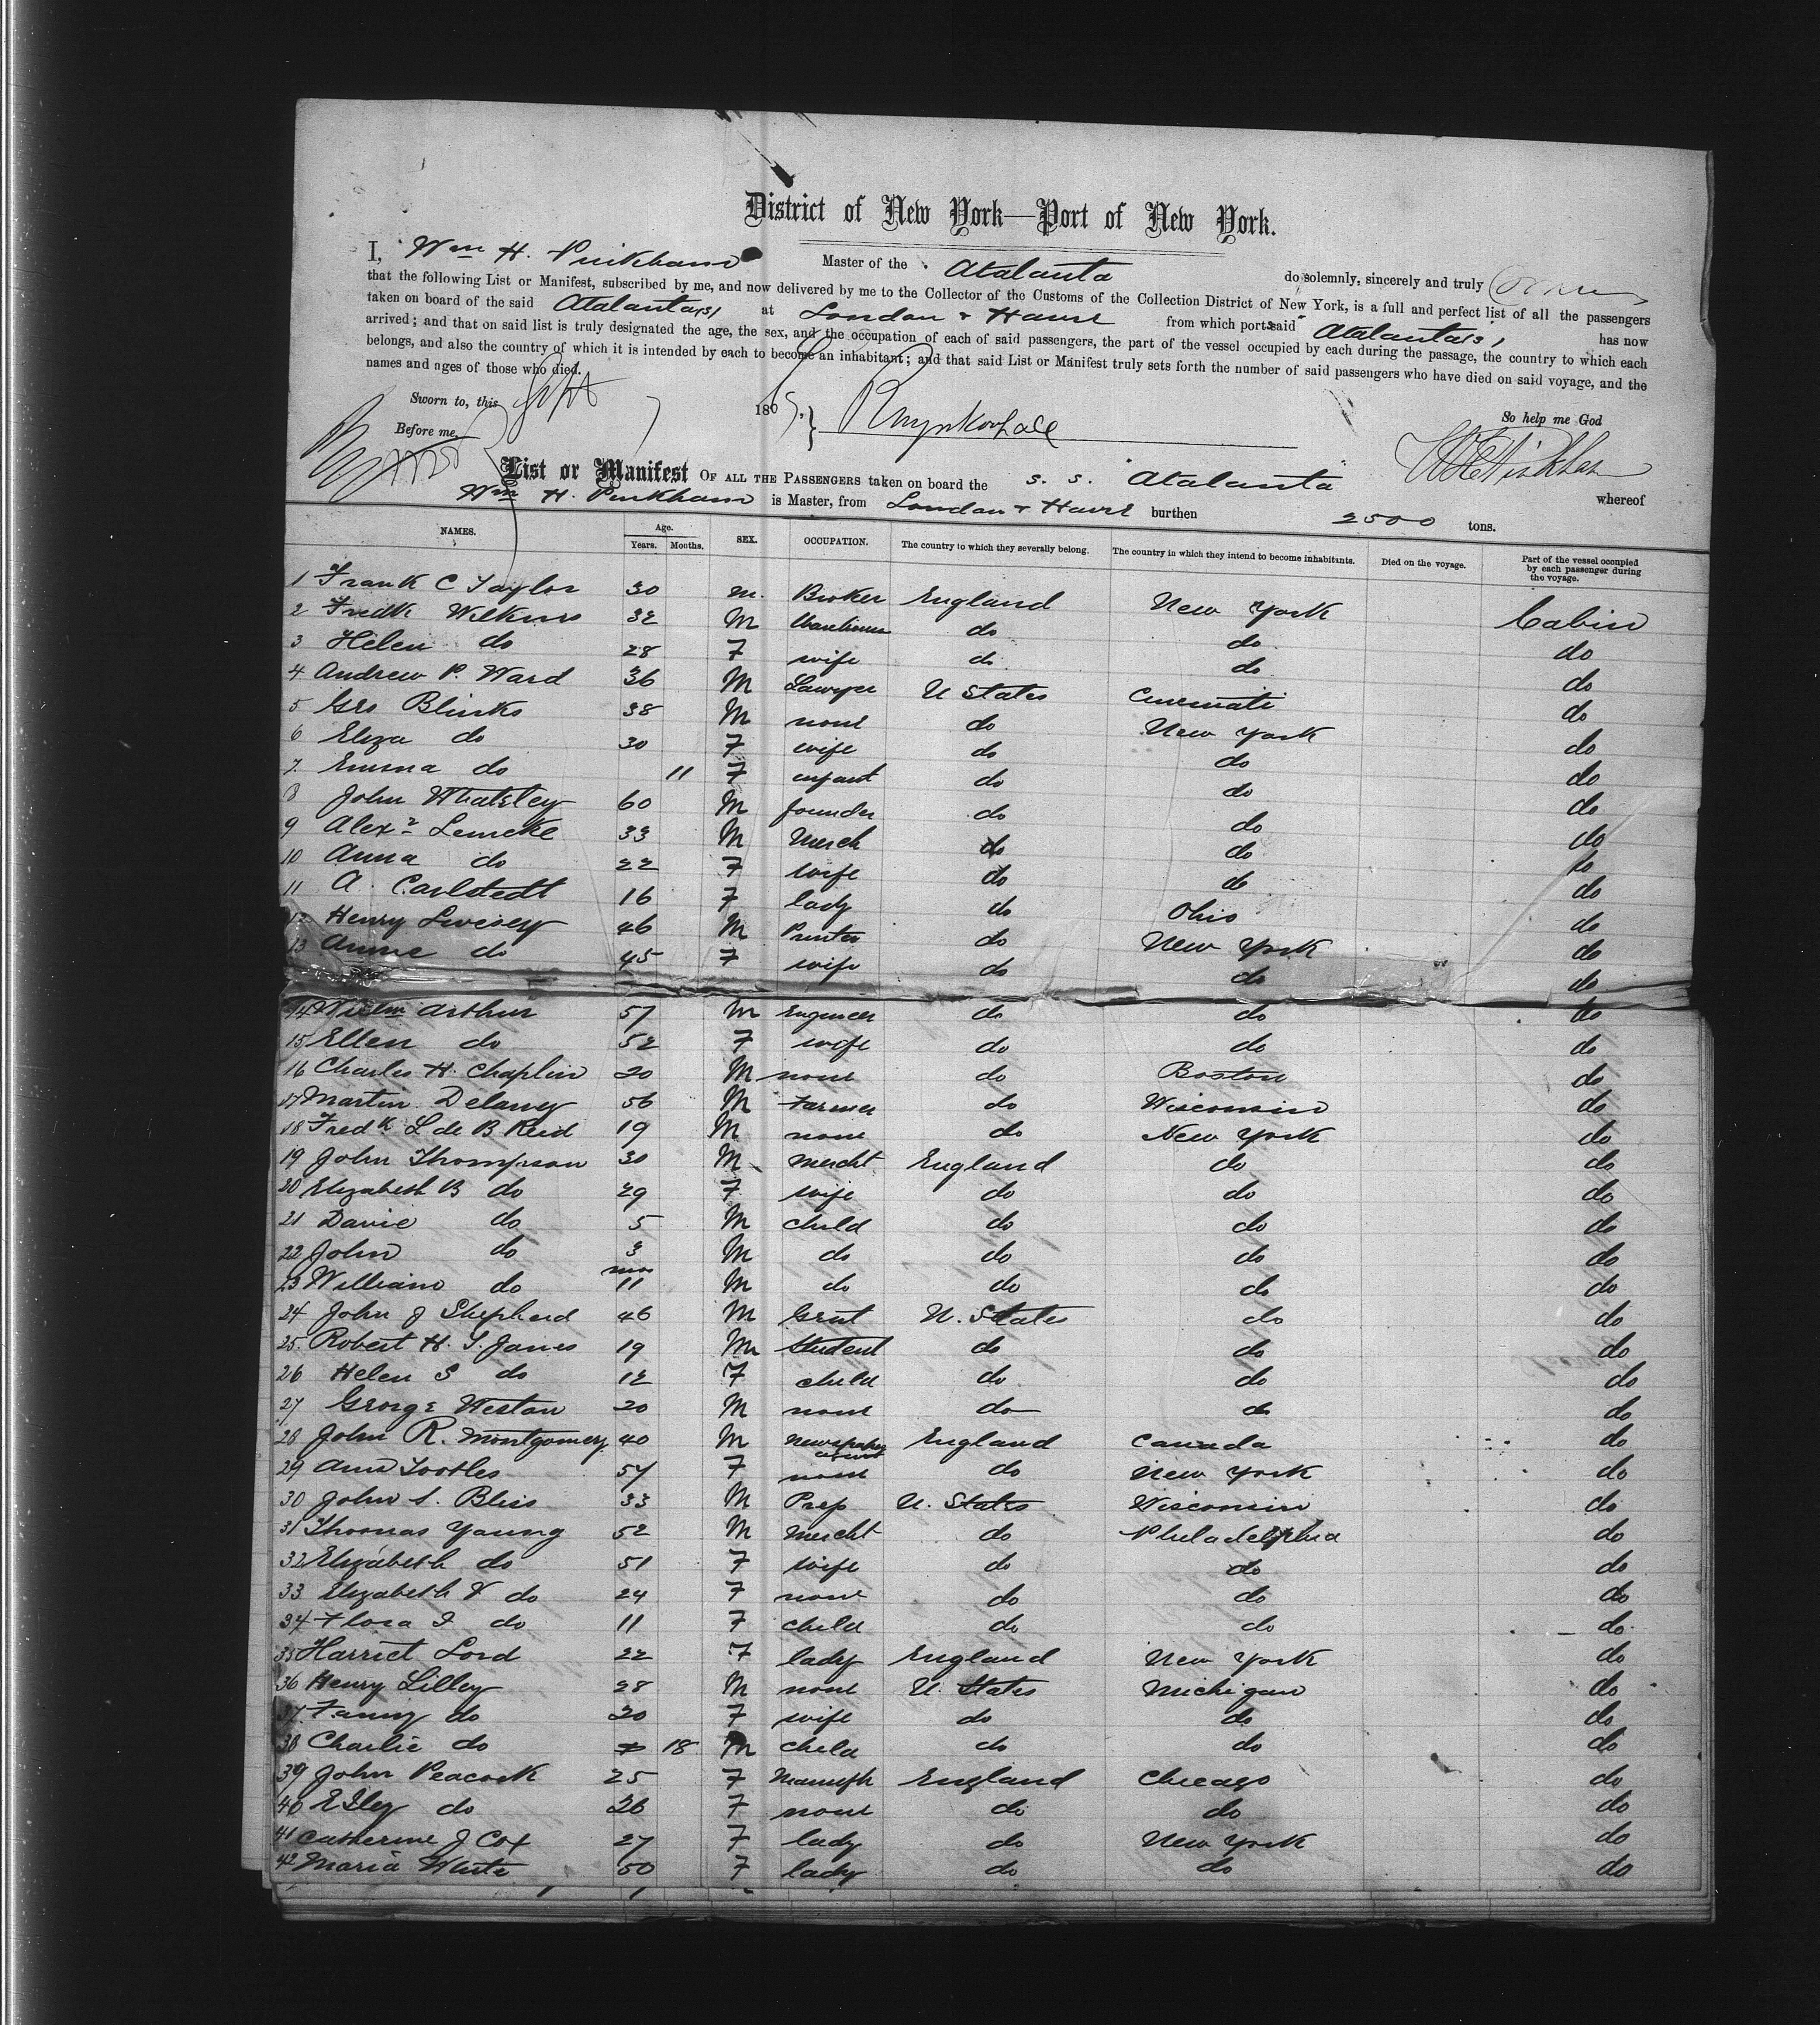 District of New York—Port of New York.
I, Wm H. Pinkham Master of the Atalanta do solemnly, sincerely and truly
that the following List or Manifest, subscribed by me, and now delivered by me to the Collector of the Customs of the Collection District of New York, is a full and perfect list of all the passengers
taken on board of the said Atalanta(s) at London & Havre from which port said Atalanta(s) has now
arrived; and that on said list is truly designated the age, the sex, and the occupation of each of said passengers, the part of the vessel occupied by each during the passage, the country to which each
belongs, and also the country of which it is intended by each to become an inhabitant; and that said List or Manifest truly sets forth the number of said passengers who have died on said voyage, and the
names and ages of those who died.
Sworn to, this Sept 7 186 So help me God
Before me,
List or Manifest OF ALL THE PASSENGERS taken on board the S. S. Atalanta whereof
Wm H. Pinkham is Master, from London & Havre burthen 2500 tons.
NAMES. Age. Years. Months. SEX. OCCUPATION. The country to which they severally belong. The country in which they intend to become inhabitants. Died on the voyage. Part of the vessel occupied by each passenger during the voyage.
1 Frank C Taylor 30 M. Broker England New York Cabin
2 Fredk Wilkins 32 M do do do
3 Helen do 28 F wife do do do
4 Andrew P. Ward 36 M Lawyer U States Cincinnati do
5 Geo Blinks 38 M none do New York do
6 Eliza do 30 F wife do do do
7 Emma do 11 F infant do do do
8 John Whatsley 60 M founder do do do
9 Alexr Lemcke 33 M Merch do do do
10 Anna do 22 F wife do do do
11 A. Carlstedt 16 F lady do Ohio do
12 Henry Livesey 46 M Printer do New York do
13 Annie do 45 F wife do do do
14 Willm Arthur 57 M Engineer do do do
15 Ellen do 52 F wife do do do
16 Charles H. Chaplin 20 M none do Boston do
17 Martin Delaney 56 M Farmer do Wisconsin do
18 Fredk L de B Reid 19 M none do New York do
19 John Thompson 30 M mercht England do do
20 Elizabeth B do 29 F wife do do do
21 Davie do 5 M child do do do
22 John do 3 M do do do do
23 William do mos 11 M do do do do
24 John J Shepherd 46 M Gent U. States do do
25. Robert H. S. Janes 19 M student do do do
26 Helen S do 12 F child do do do
27 George Weston 20 M none do do do
28 John R. Montgomery 40 M newspaper England Canada do
29 Ann Tootles 54 F none do New York do
30 John S. Bliss 33 M Prep U. States Wisconsin do
31 Thomas Young 52 M mercht do Philadelphia do
32 Elizabeth do 51 F wife do do do
33 Elizabeth V do 24 F none do do do
34 Flora I do 11 F child do do do
35 Harriet Lord 22 F lady England New York do
36 Henry Lilley 28 M none U. States Michigan do
37 Fanny do 20 F wife do do do
38 Charlie do 18 M child do do do
39 John Peacock 25 F England Chicago do
40 do 26 F none do do do
41 Catherine J Cox 27 F lady do New York do
42 Maria White 50 F lady do do do